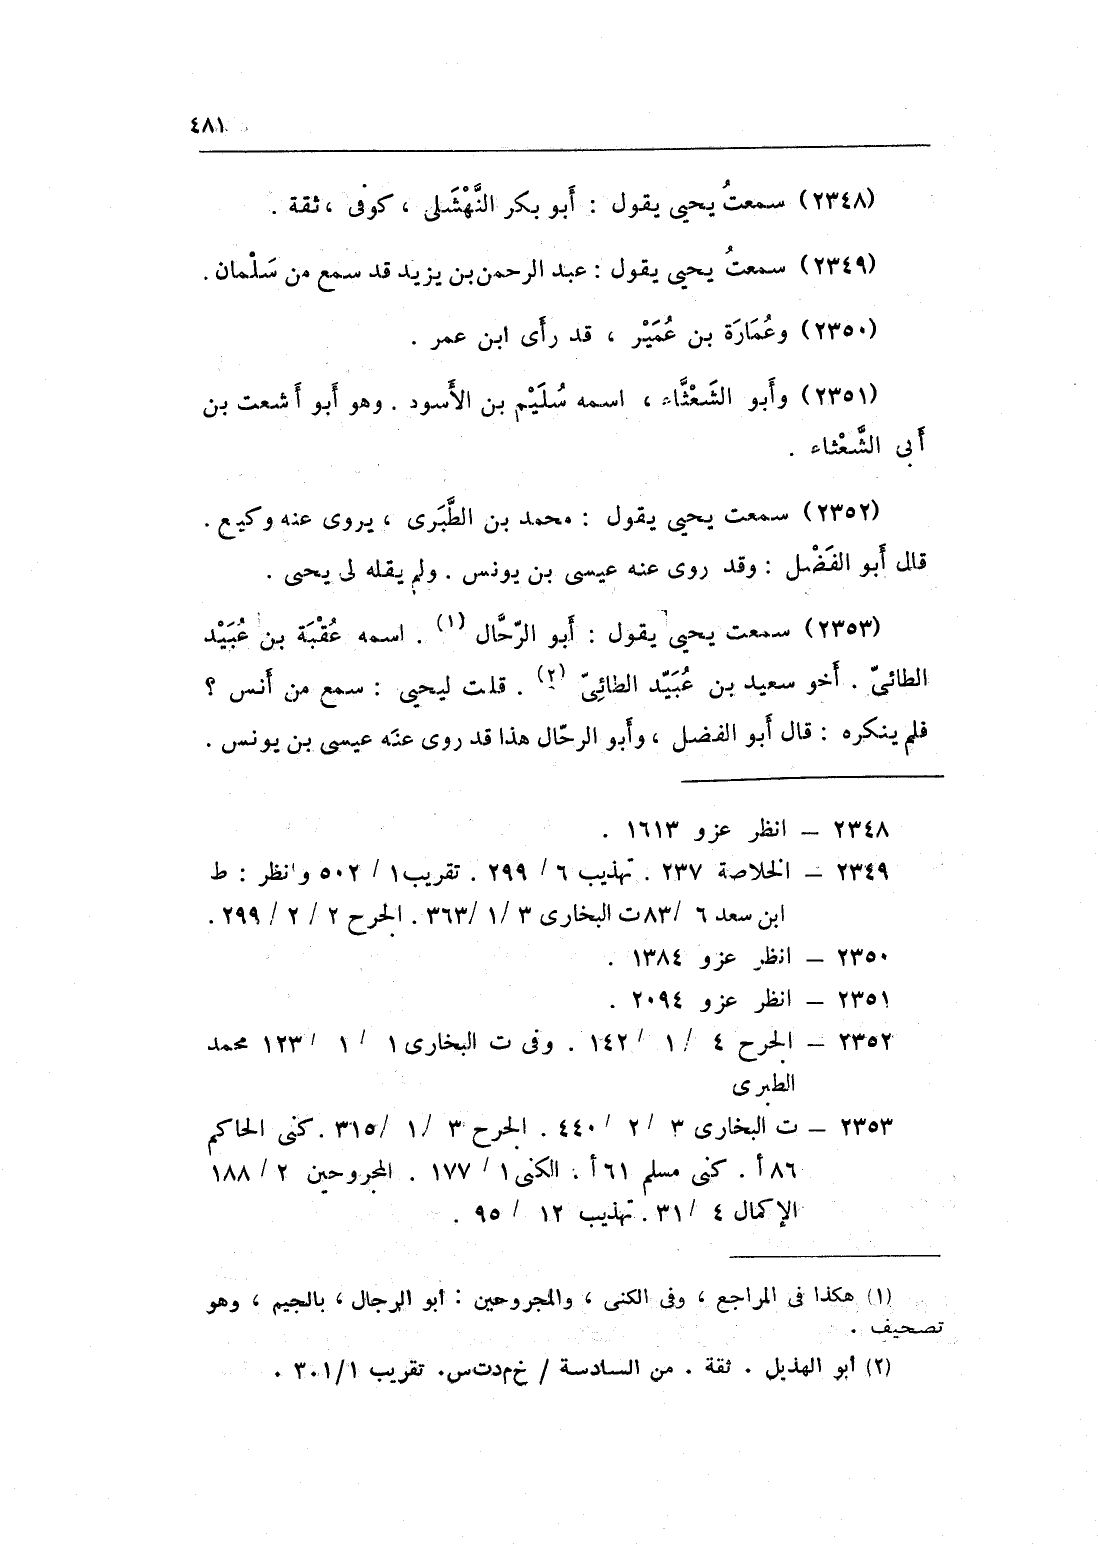 ٤٨١
(٢٣٤٨) سمعتُ يحيى يقول : أَبو بكر النَّهْشَلى ، كوفى ، ثقة .
(٢٣٤٩) سمعتُ يحيى يقول : عبد الرحمن بن يزيد قد سمع من سَلْمان .
(٢٣٥٠) وعُمَارَة بن عُمَيْر ، قد رأَى ابن عمر .
(٢٣٥١) وأَبو الشَعْثَّاء ، اسمه سُلَيْم بن الأَسود . وهو أَبو أَشعت بن
أَبى الشَّعْثاء .
(٢٣٥٢) سمعت يحيى يقول : محمد بن الطَّبَرى ، يروى عنه وكيع .
قال أَبو الفَضْل : وقد روى عنه عيسى بن يونس . ولم يقله لى يحيى .
(٢٣٥٣) سمعت يحيى يقول : أَبو الرّحَّال (١) . اسمه عُقْبَة بن عُبَيْد
الطائىّ . أَخو سعيد بن عُبَيّد الطائِىّ (٢) . قلت ليحيى : سمع من أَنس ؟
فلم ينكره : قال أَبو الفضل ، وأَبو الرحّال هذا قد روى عنه عيسى بن يونس .
٢٣٤٨ – انظر عزو ١٦١٣ .
٢٣٤٩ – الخلاصة ٢٣٧ . تهذيب ٦ / ٢٩٩ . تقريب ١ / ٥٠٢ وانظر : ط
ابن سعد ٦ /٨٣ ت البخارى ٣ /١ /٣٦٣ . الجرح ٢ / ٢ / ٢٩٩ .
٢٣٥٠ – انظر عزو ١٣٨٤ .
٢٣٥١ – انظر عزو ٢٠٩٤ .
٢٣٥٢ – الجرح ٤ /١ /١٤٢ . وفى ت البخارى ١ / ١ /١٢٣ محمد
الطبرى
٢٣٥٣ – ت البخارى ٣ / ٢ /٤٤٠ . الجرح ٣ /١ /٣١٥ . كنى الحاكم
٨٦ أ . كنى مسلم ٦١ أ . الكنى ١ / ١٧٧ . المجروحين ٢ / ١٨٨
الإكمال ٤ /٣١ . تهذيب ١٢ / ٩٥ .
(١) هكذا فى المراجع ، وفى الكنى ، والمجروحين : ابو الرجال ، بالجيم ، وهو
تصحيف .
(٢) أبو الهذيل . ثقة . من السادسة / خ م د ت س . تقريب ٣٠١/١ .